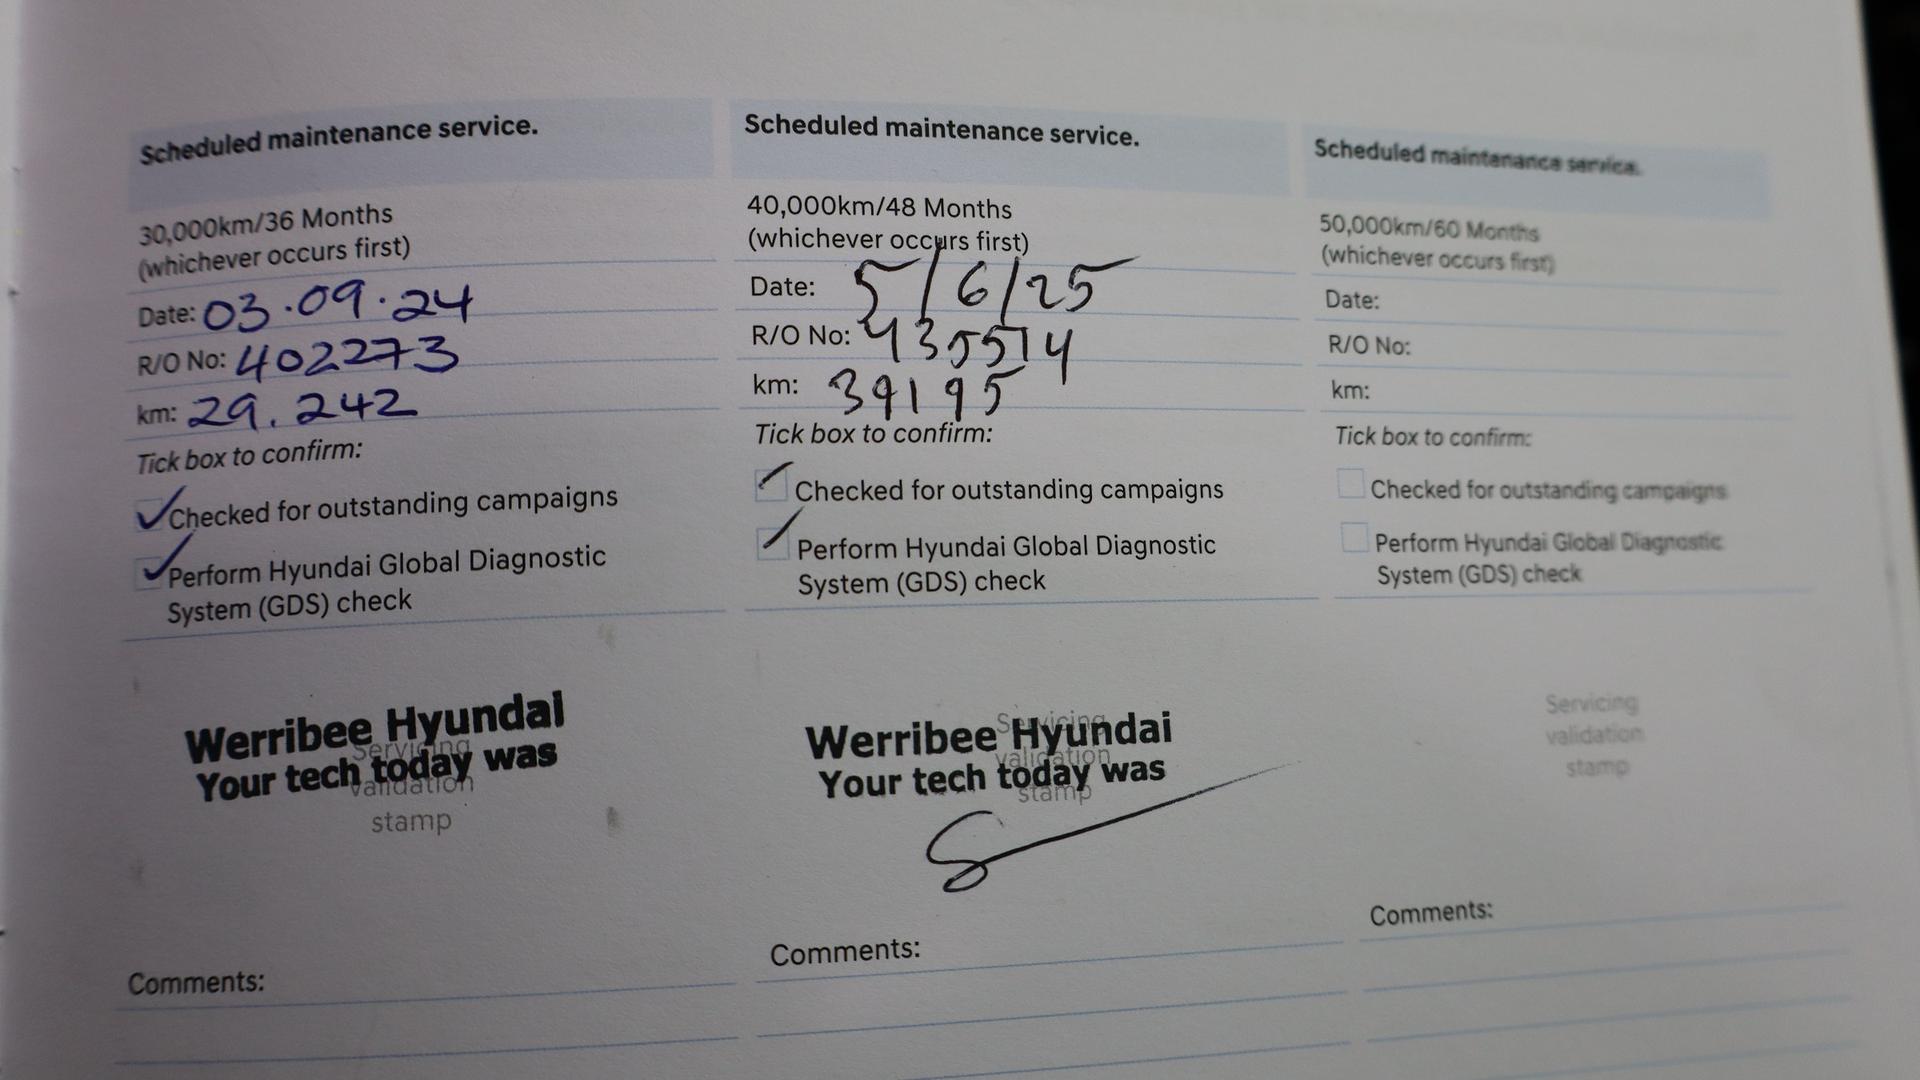 Scheduled maintenance service.
30,000km/36 Months
(whichever occurs first)
Date: 03.09.24
R/O No: 402273
km: 29.242
Tick box to confirm:
Checked for outstanding campaigns
Perform Hyundai Global Diagnostic
System (GDS) check
Werribee Hyundai
Your tech today was
Servicing
validation
stamp
Comments:
Scheduled maintenance service.
40,000km/48 Months
(whichever occurs first)
Date: 5/6/25
R/O No: 435514
km: 39195
Tick box to confirm:
Checked for outstanding campaigns
Perform Hyundai Global Diagnostic
System (GDS) check
Werribee Hyundai
Your tech today was
Servicing
validation
stamp
Comments:
Scheduled maintenance service.
50,000km/60 Months
(whichever occurs first)
Date:
R/O No:
km:
Tick box to confirm:
Checked for outstanding campaigns
Perform Hyundai Global Diagnostic
System (GDS) check
Servicing
validation
stamp
Comments: